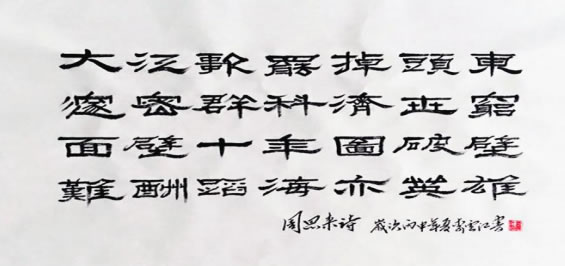 大江歌罷掉頭東
邃密群科濟世窮
面壁十年圖破壁
難酬蹈海亦英雄
周恩来詩 歲次丙申年夏 云江書